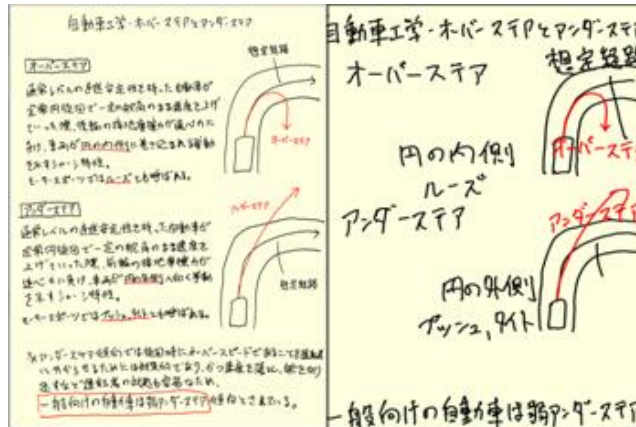 自動車工学・オーバーステアとアンダーステア
オーバーステア
想定経路
通常レベルの直進安定性を持った自動車が
定常円旋回で一定の舵角のまま速度を上げ
ていった際、後輪の接地摩擦力が遠心力に
負け、車両が円の内側に巻き込まれる挙動
を示すシャーシ特性。
モータースポーツではルーズとも呼ばれる。
オーバーステア
アンダーステア
アンダーステア
通常レベルの直進安定性を持った自動車が
定常円旋回で一定の舵角のまま速度を
上げていった際、前輪の接地摩擦力が
遠心力に負け、車両が円の外側へ向く挙動
を示すシャーシ特性。
モータースポーツではプッシュ,タイトとも呼ばれる。
想定経路
一般向けの自動車は弱アンダーステア傾向とされている。
自動車工学・オーバーステアとアンダーステア
オーバーステア
想定経路
オーバーステ
円の内側
ルーズ
アンダーステア
アンダーステア
円の外側
プッシュ,タイト
一般向けの自動車は弱アンダーステア